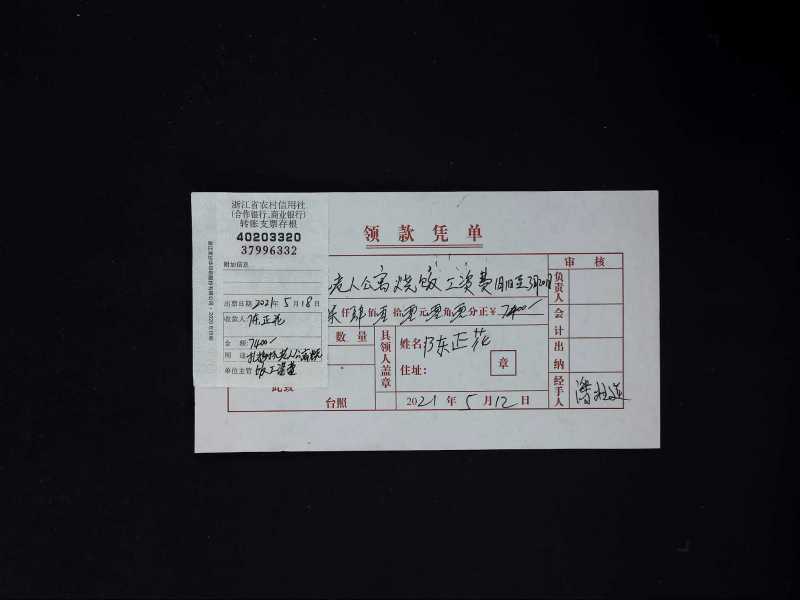 浙江省农村信用社
(合作银行、商业银行)
转账支票存根
40203320
37996332
附加信息
出票日期 2021年 5月18日
收款人: 陈正花
金 额: 7400/
用 途: 老人公寓烧
单位主管 饭工资
领款凭单
老人公寓烧饭工资费
仟肆佰零拾零元零角零分正 ¥ 7400/
数量
具领人盖章
姓名 陈正花
住址:
章
台照
2021年 5月12日
审核
负责人
会计
出纳
经手人